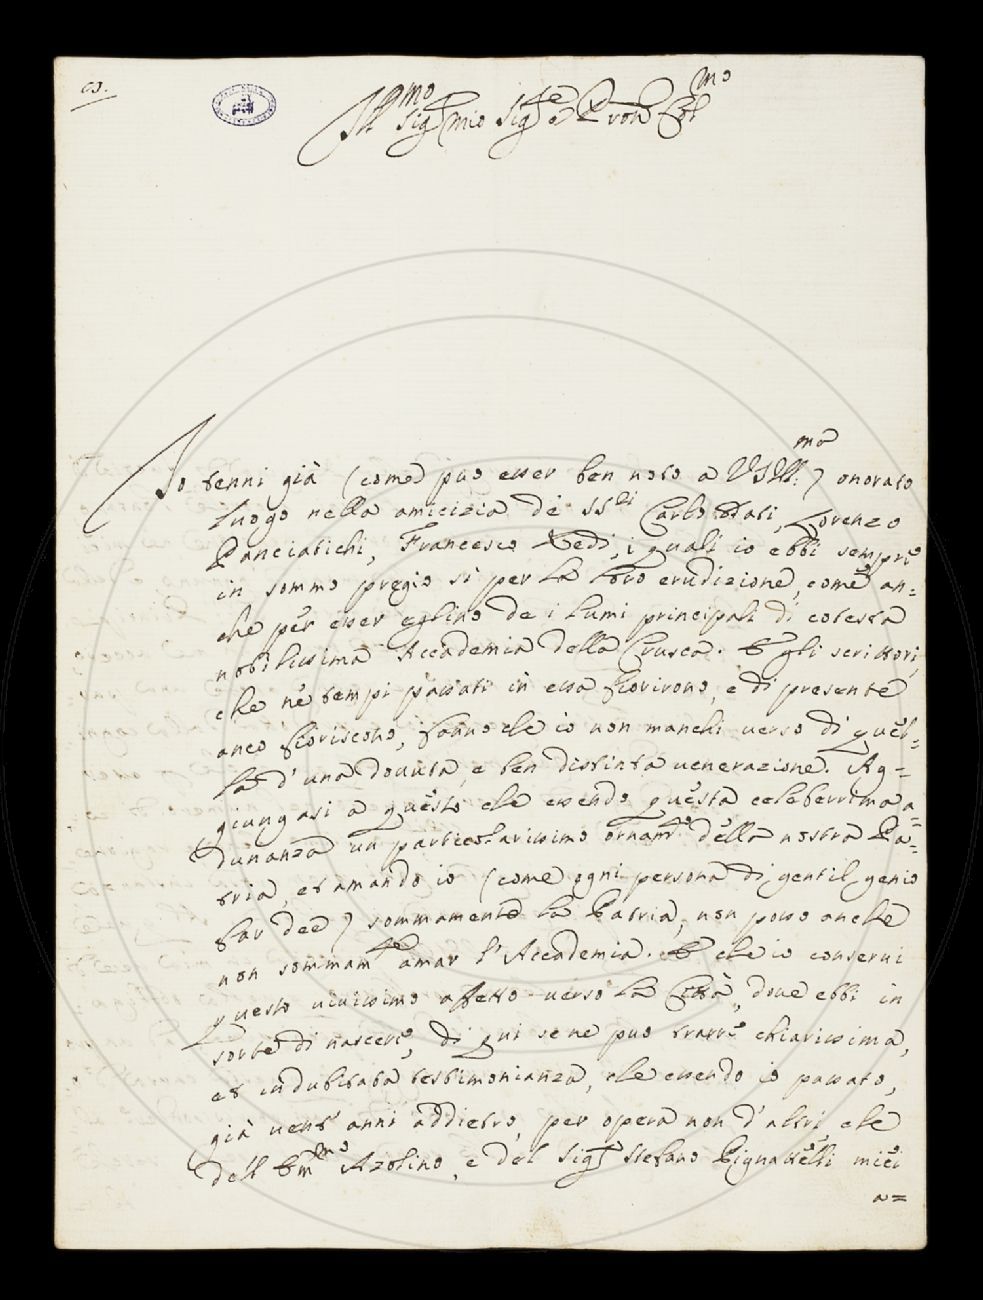 Ill.mo Sig.r mio Sig.re e Pron Col.mo
Io tenni già (come può esser ben noto a VSIll:ma) onorato
luogo nella amicizia de' SS.ri Carlo Dati, Lorenzo
Panciatichi, Francesco Redi, i quali io ebbi sempre
in sommo pregio sì per la loro erudizione, come an=
che per esser eglino de i lumi principali di cotesta
nobilissima Accademia della Crusca. E gli scrittori,
che ne' tempi passati in essa fiorirono, e di presente
anco fioriscono, fanno che io non manchi verso di quel=
la d'una dovuta, e ben distinta venerazione. Ag=
giungasi a questo che essendo questa celeberrima a=
dunanza un particolarissimo ornam.to della nostra Pa=
tria, et amando io (come ogni persona di gentil genio
far dee) sommamente la Patria, non posso anche
non sommam.te amar l'Accademia. E che io conservi
questo vivissimo affetto verso la Città, dove ebbi in
sorte di nascere, di qui se ne può trarre chiarissima,
et indubitata testimonianza, che essendo io passato,
già vent' anni addietro, per opera non d'altri, che
dell' Em.mo Azolino, e del Sig.r Stefano Pignattelli miei